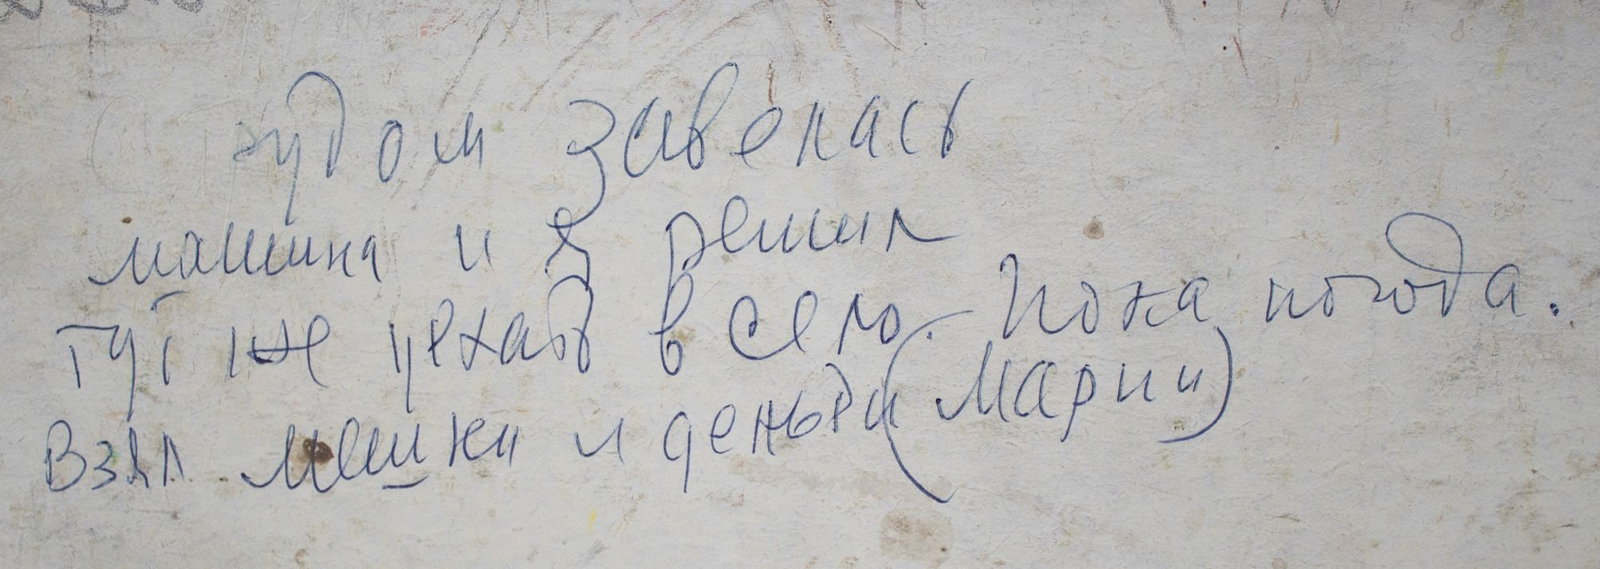 чудом завелась
машина и я решил
тут же уехать в село. Пока погода.
Взял мешки и деньги (Марии)